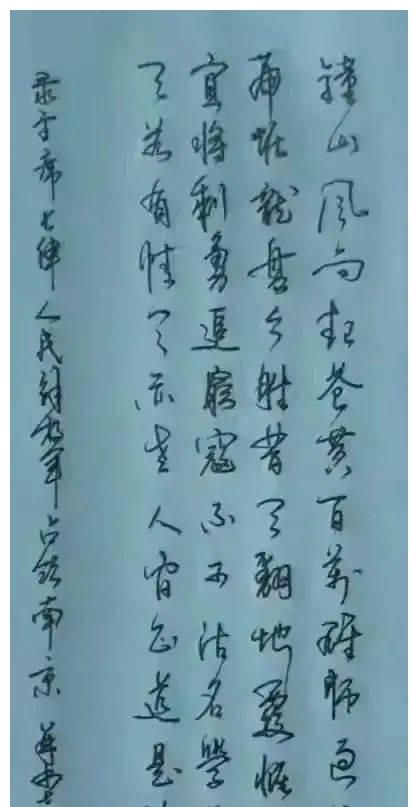 鐘山风雨起苍黄百万雄师过
虎踞龍盘今胜昔天翻地覆慨
宜将剩勇追窮寇不可沽名學
天若有情天亦老人间正道是
录主席七律人民解放军占领南京